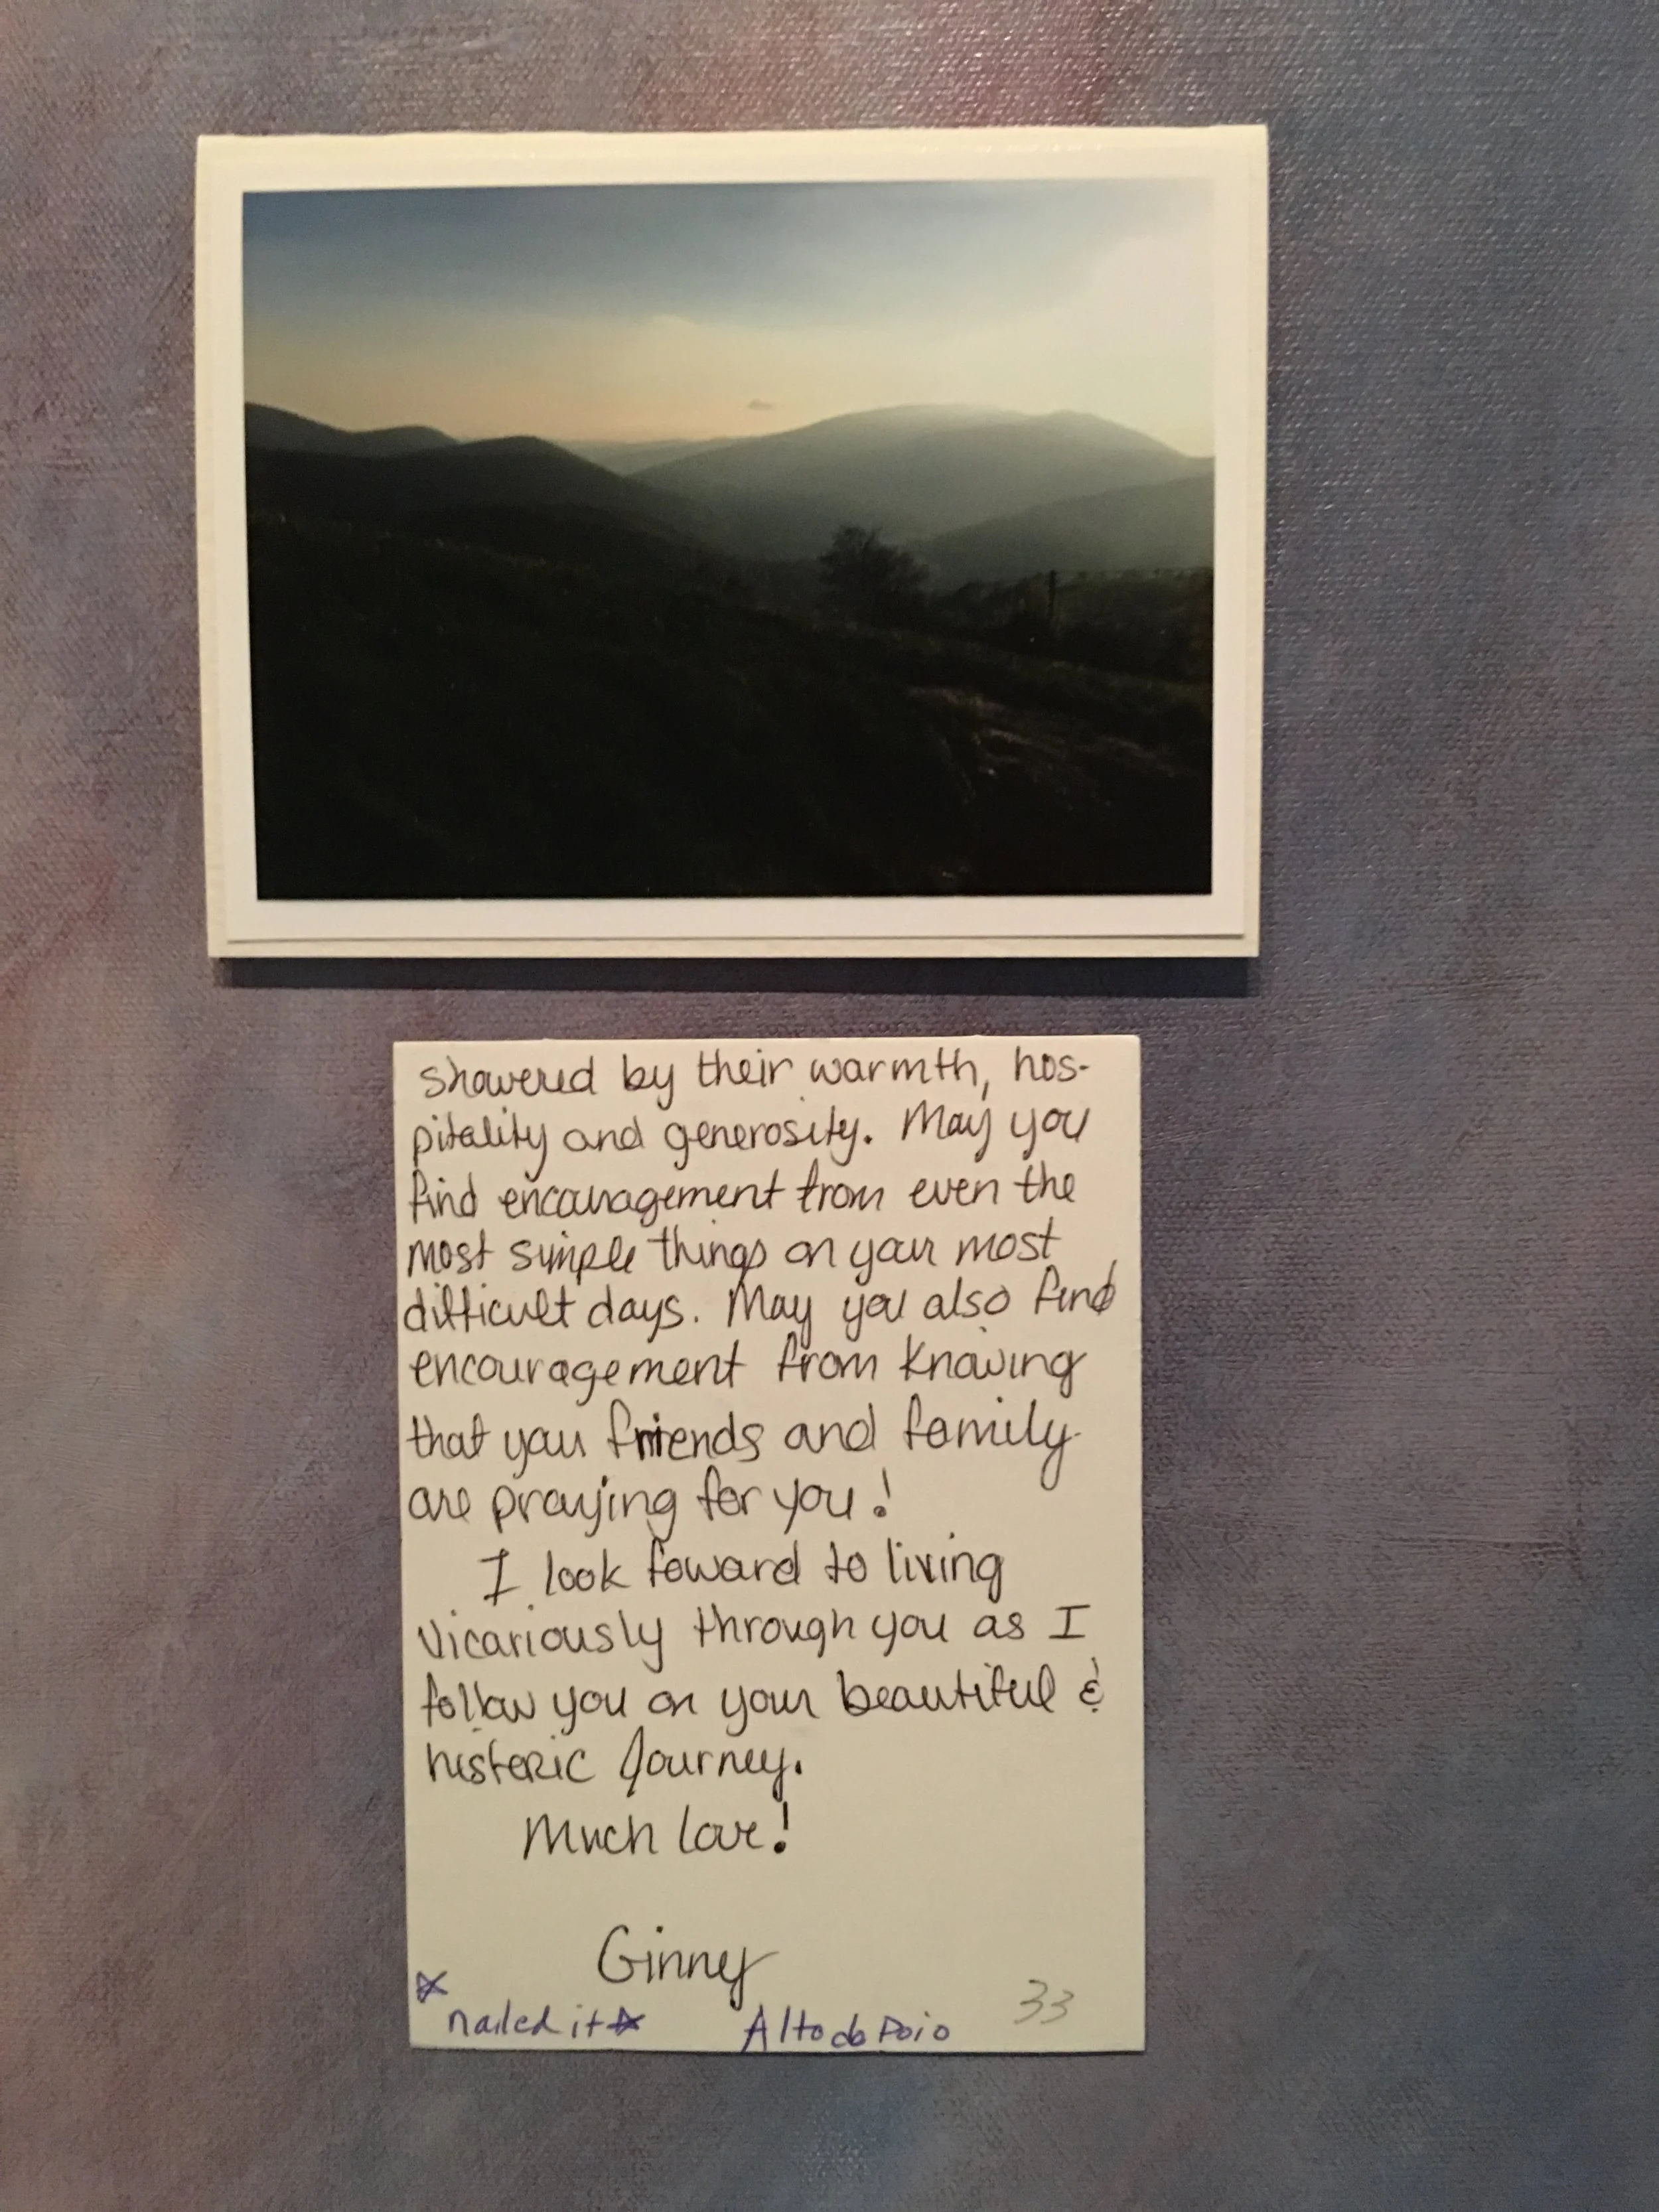 showered by their warmth, hos-
pitality and generosity. May you
find encouragement from even the
most simple things on your most
difficult days. May you also find
encouragement from knowing
that your friends and family
are praying for you!
I look foward to living
vicariously through you as I
follow you on your beautiful &
historic Journey.
Much love!
Ginny
☆ nailed it ☆ Alto do Poio 33